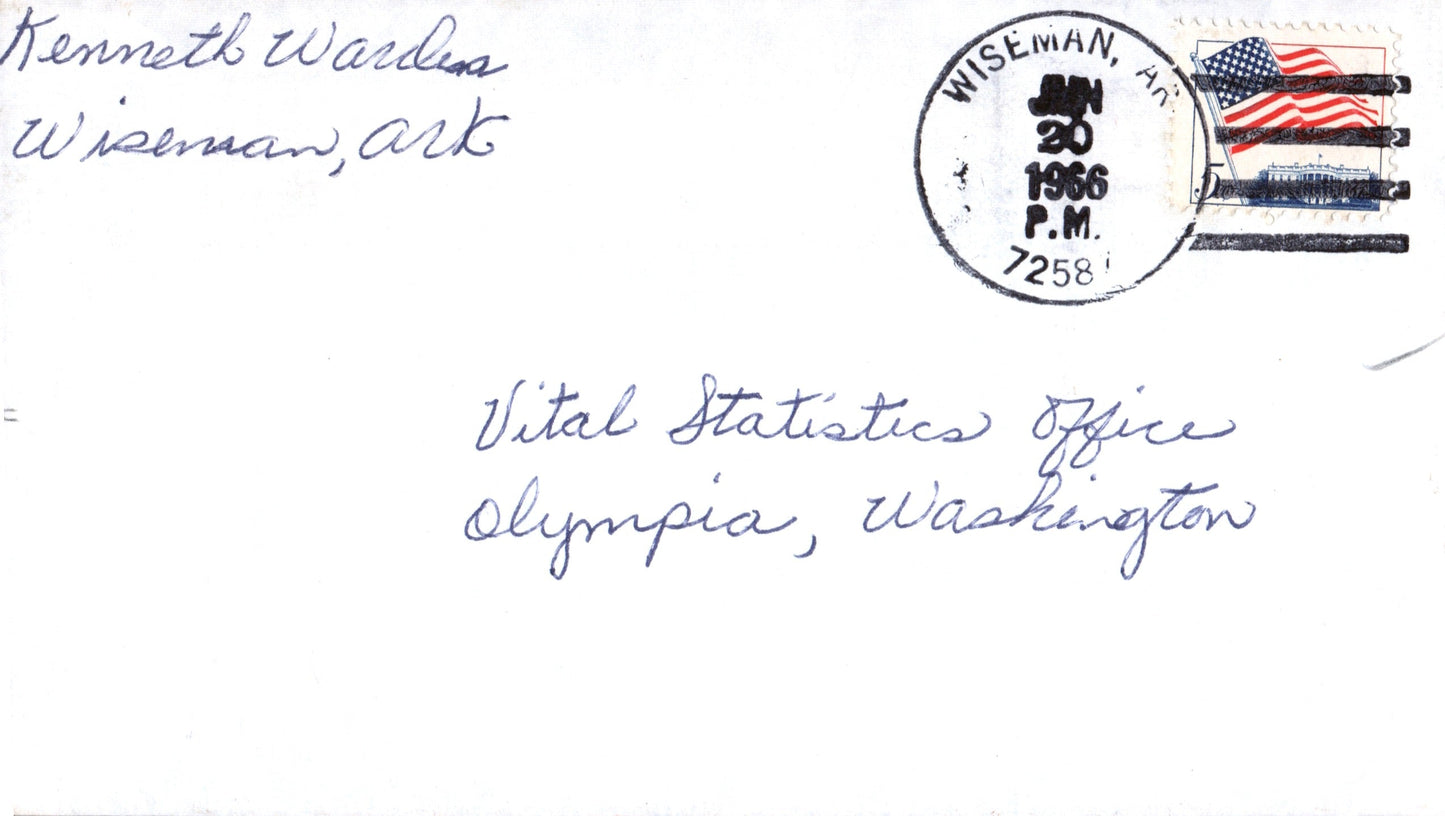 Kenneth Warden
Wiseman, Ark
WISEMAN, AR
JUN
20
1966
P.M.
7258
5
Vital Statistics Office
Olympia, Washington